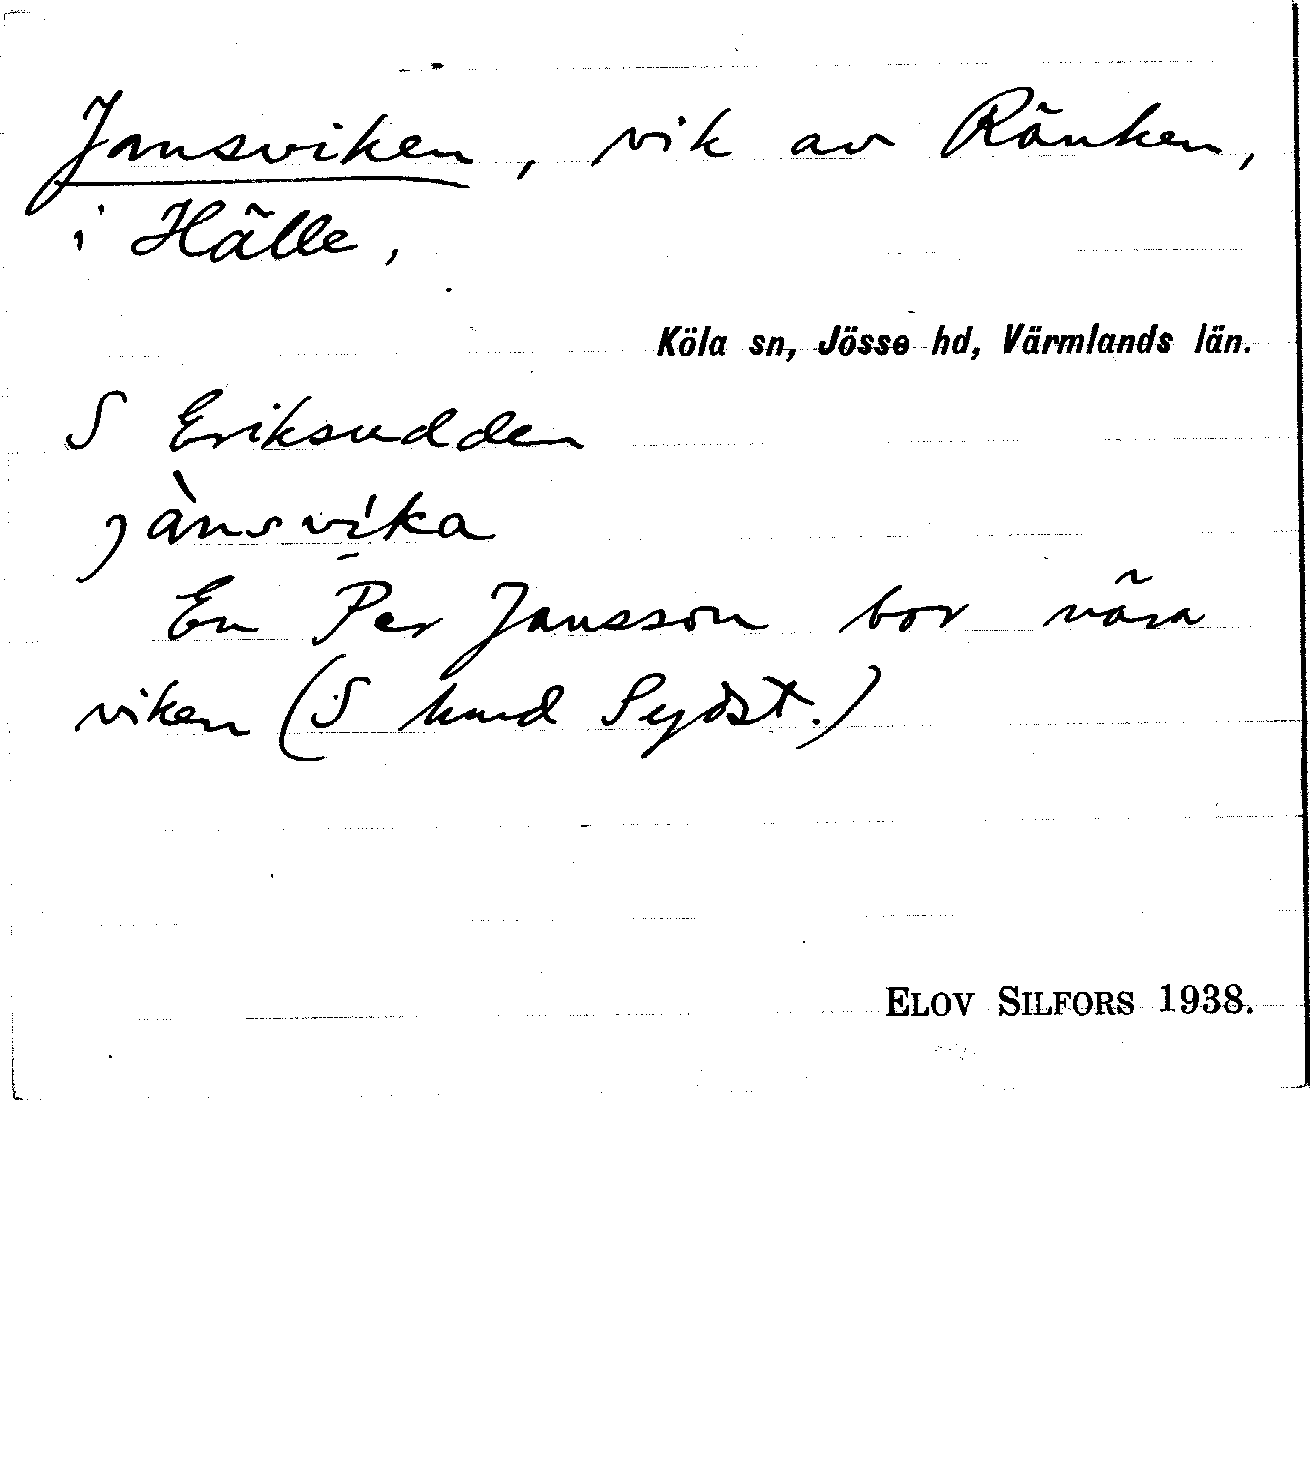 Jansviken, vik av Ränken,
i Hälle,
Köla sn, Jösse hd, Värmlands län.
S Eriksudden
jànsvika
En Per Jansson bor nära
viken (S Lund Sydöst.)
ELOV SILFORS 1938.